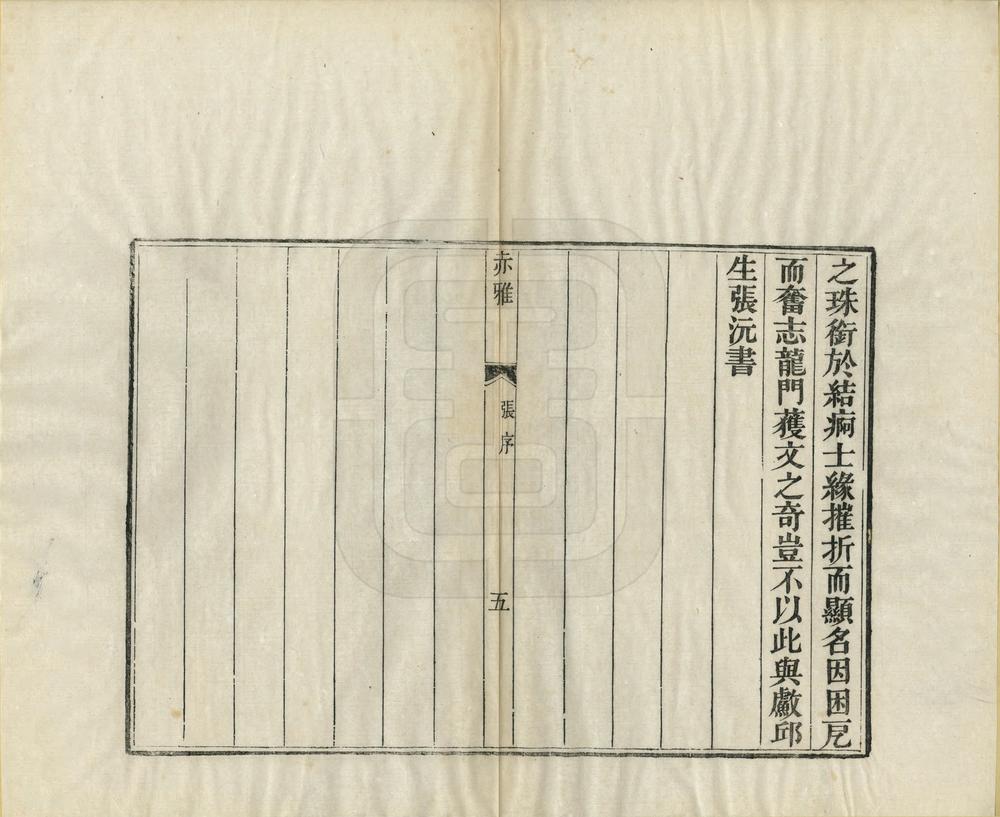 之珠銜於結痾士緣摧折而顯名因困戹
而奮志龍門蒦文之奇豈不以此與㱆邱
生張沅書
赤雅
張序
五